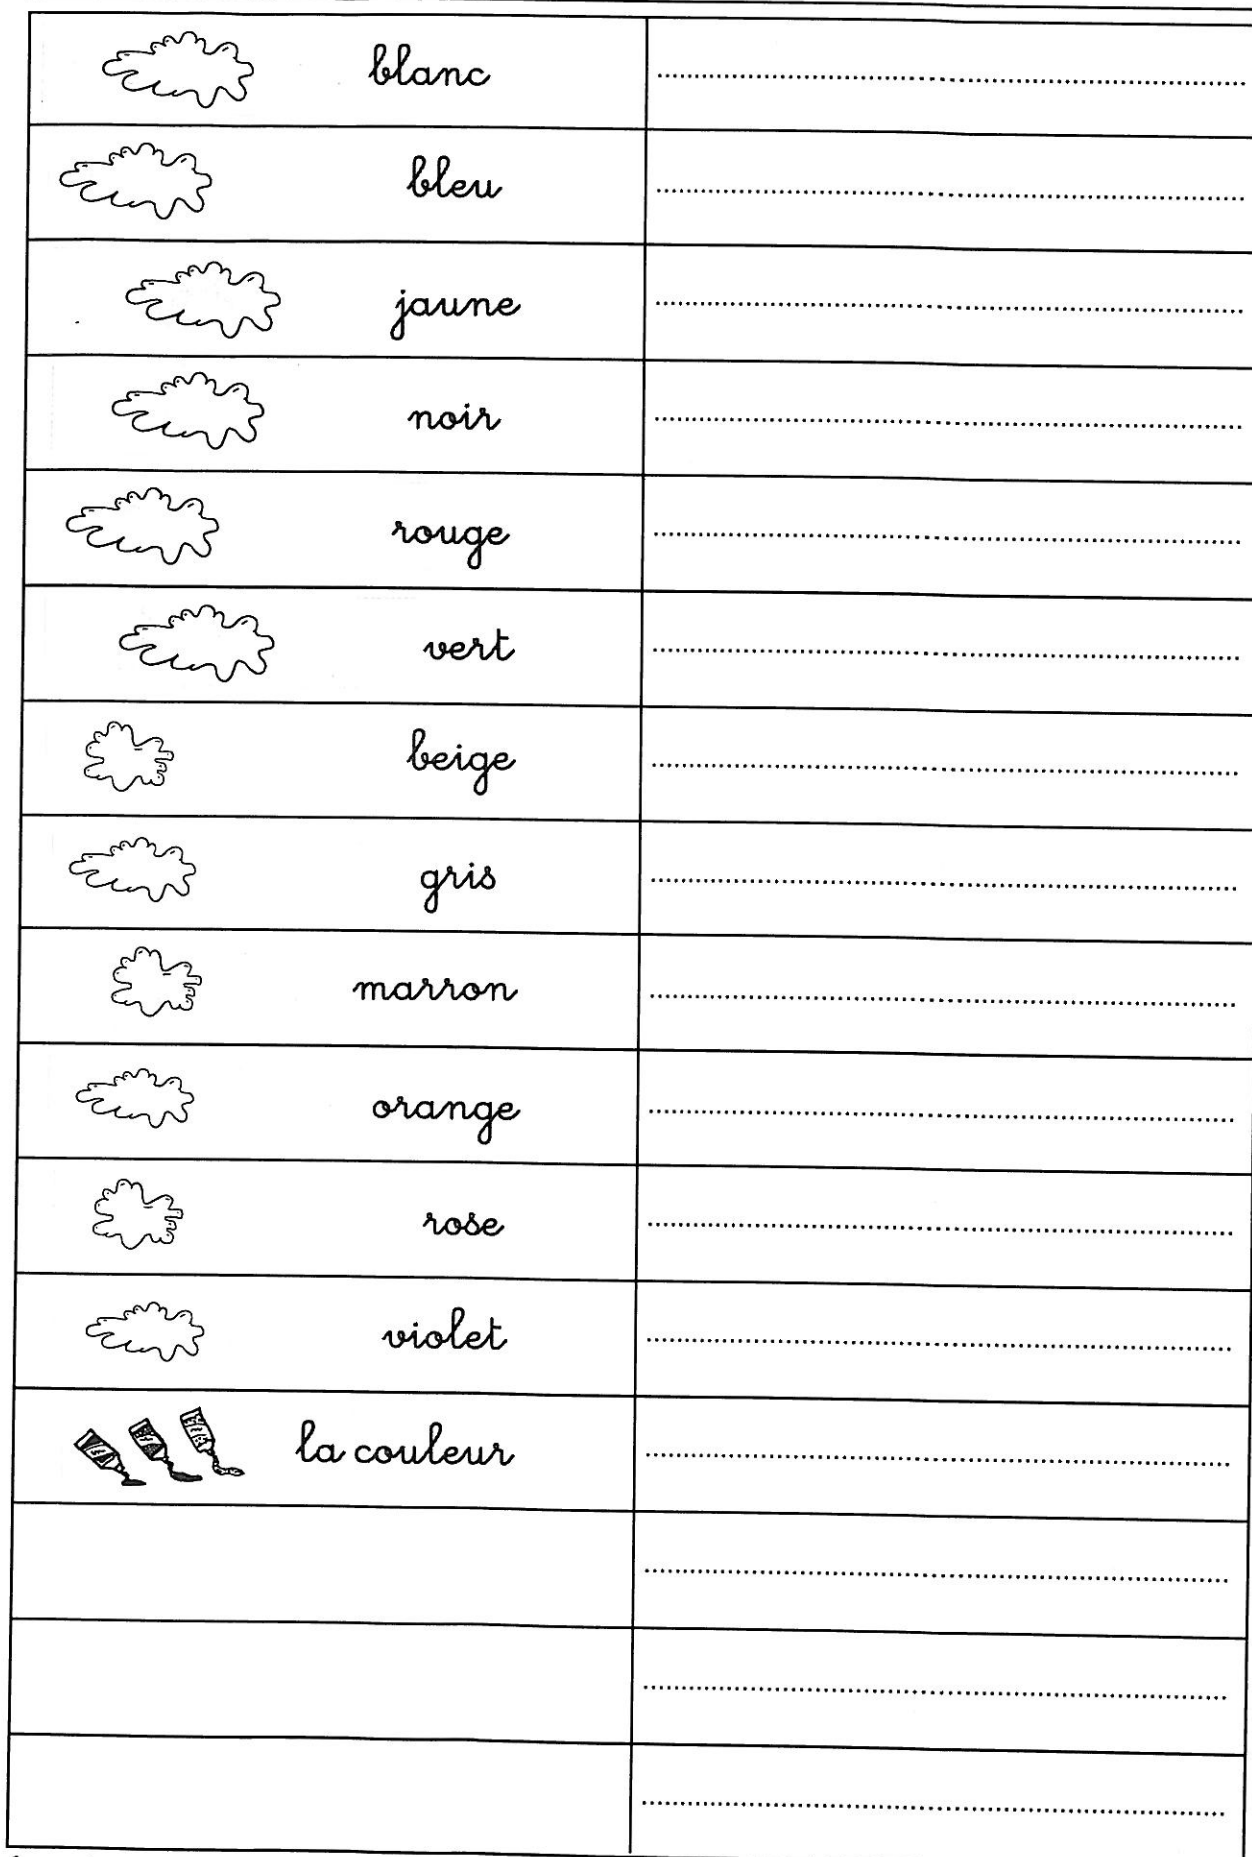 blanc
bleu
jaune
noir
rouge
vert
beige
gris
marron
orange
rose
violet
la couleur